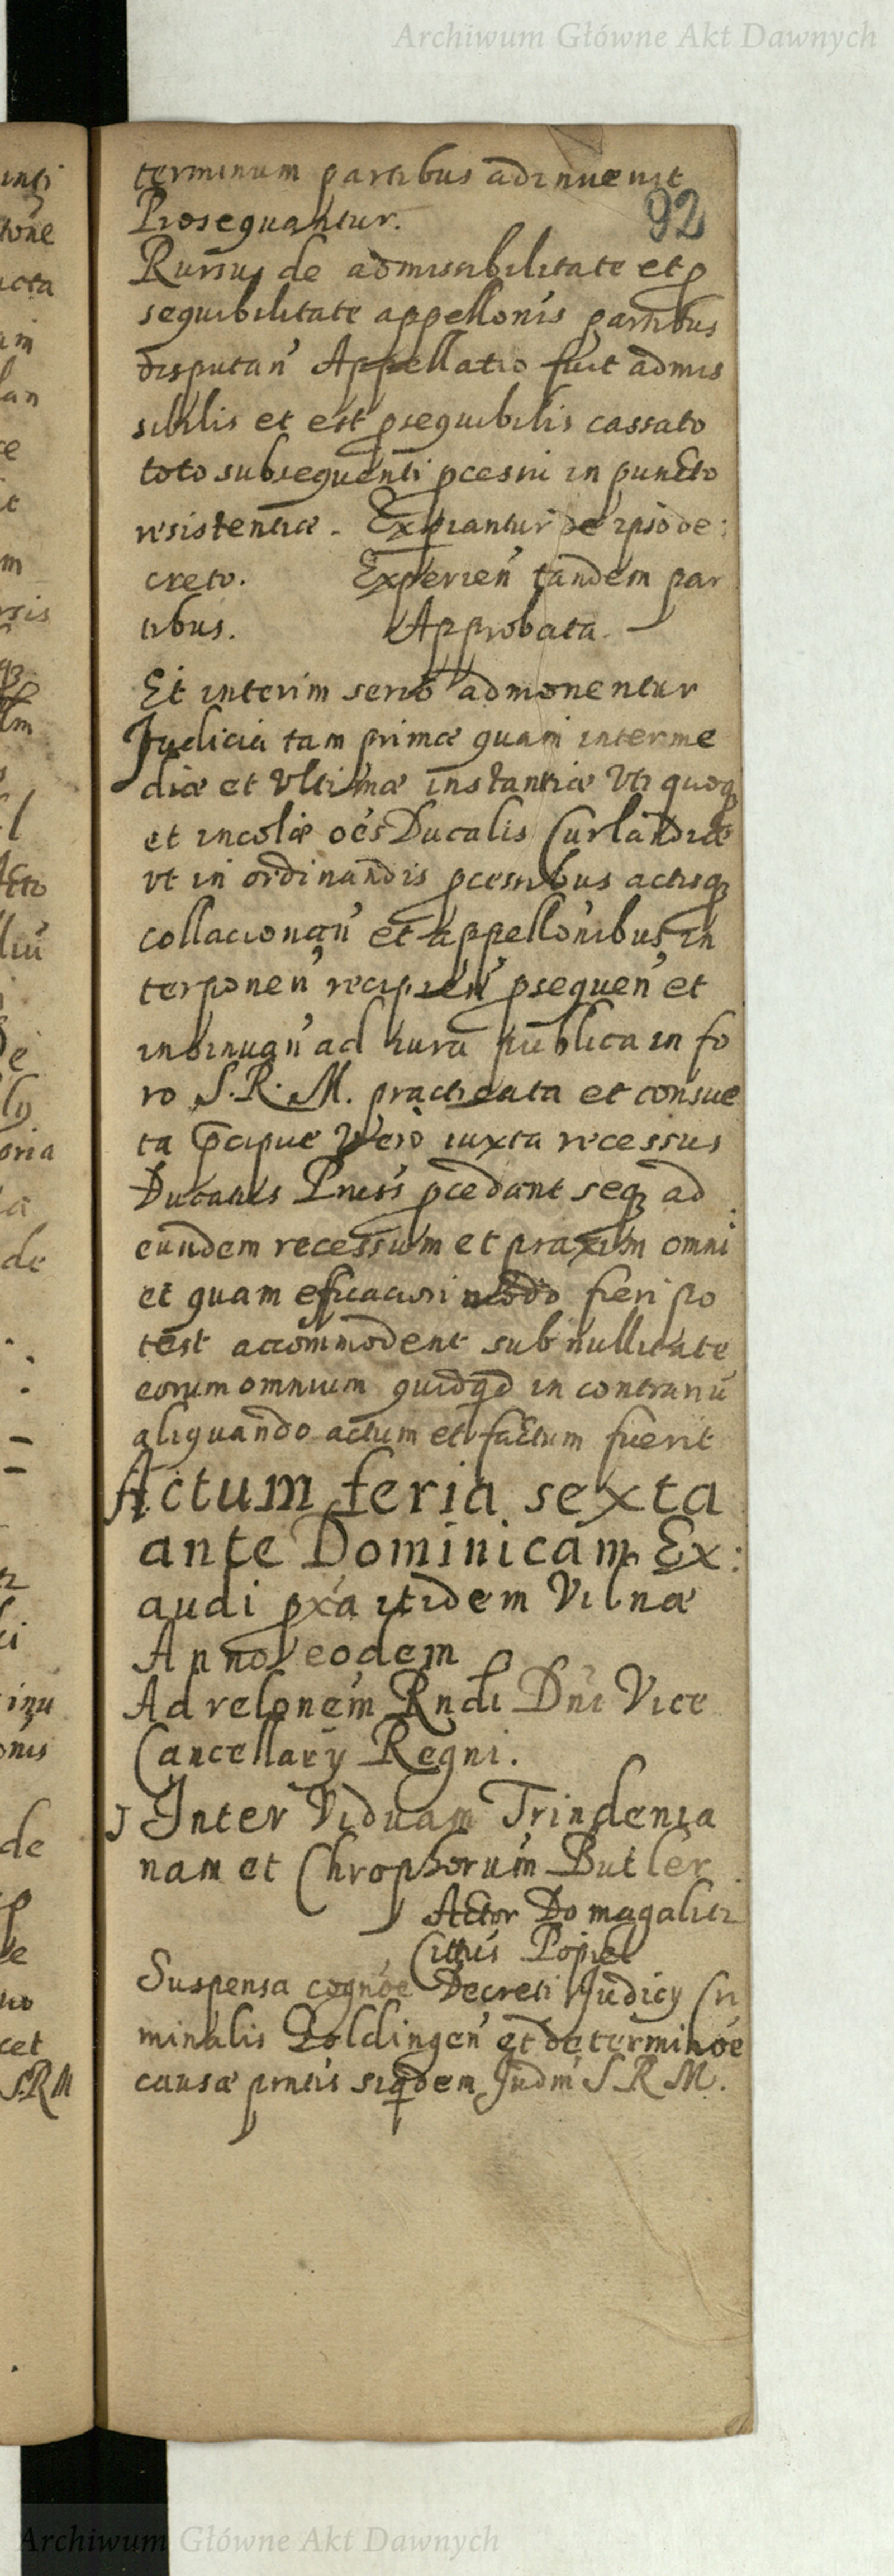 Archiwum Główne Akt Dawnych
terminum partibus adinvenit
92
Prosequantur.
Rursus de admissibilitate et p
sequibilitate appellonis partibus
disputan' Appellatio fuit admis
sibilis et est psequibilis cassato
toto subsequenti pcessu in puncto
resistentiæ. Expiantur de ipso de:
creto. Experien' tandem par
tibus. Approbata.
Et interim serio admonentur
Judicia tam primæ quam interme
diæ et Ultimæ instantiæ Uti quoq
et incolæ oes Ducalis Curlandiæ
ut in ordinandis pcessibus actisq
collacionan' et appellonibus in
terponen' recipien' psequen' et
insinuan' ad iura publica in fo
ro S. R. M. practicata et consue
ta pcipue Vero iuxta recessus
Ducatus pcedant seq ad
eundem recessum et praxim omni
et quam eficaciori modo fieri po
test accommodent sub nullitate
eorum omnium quidqd in contrariu
aliquando actum et factum fuerit
Actum feria sexta
ante Dominicam Ex:
audi pxa itidem Vilnæ
Anno eodem
Ad relonem Rndi Dni Vice
Cancellarij Regni.
J Inter Viduam Trindenia
nam et Chrophorum Butler
Actor Domagalicz
Cittus Popiel
Suspensa cognoe Decreti Judicij Cri
minalis Goldingen' et determinoe
causæ pntis siqdem Judm S R M.
Archiwum Główne Akt Dawnych